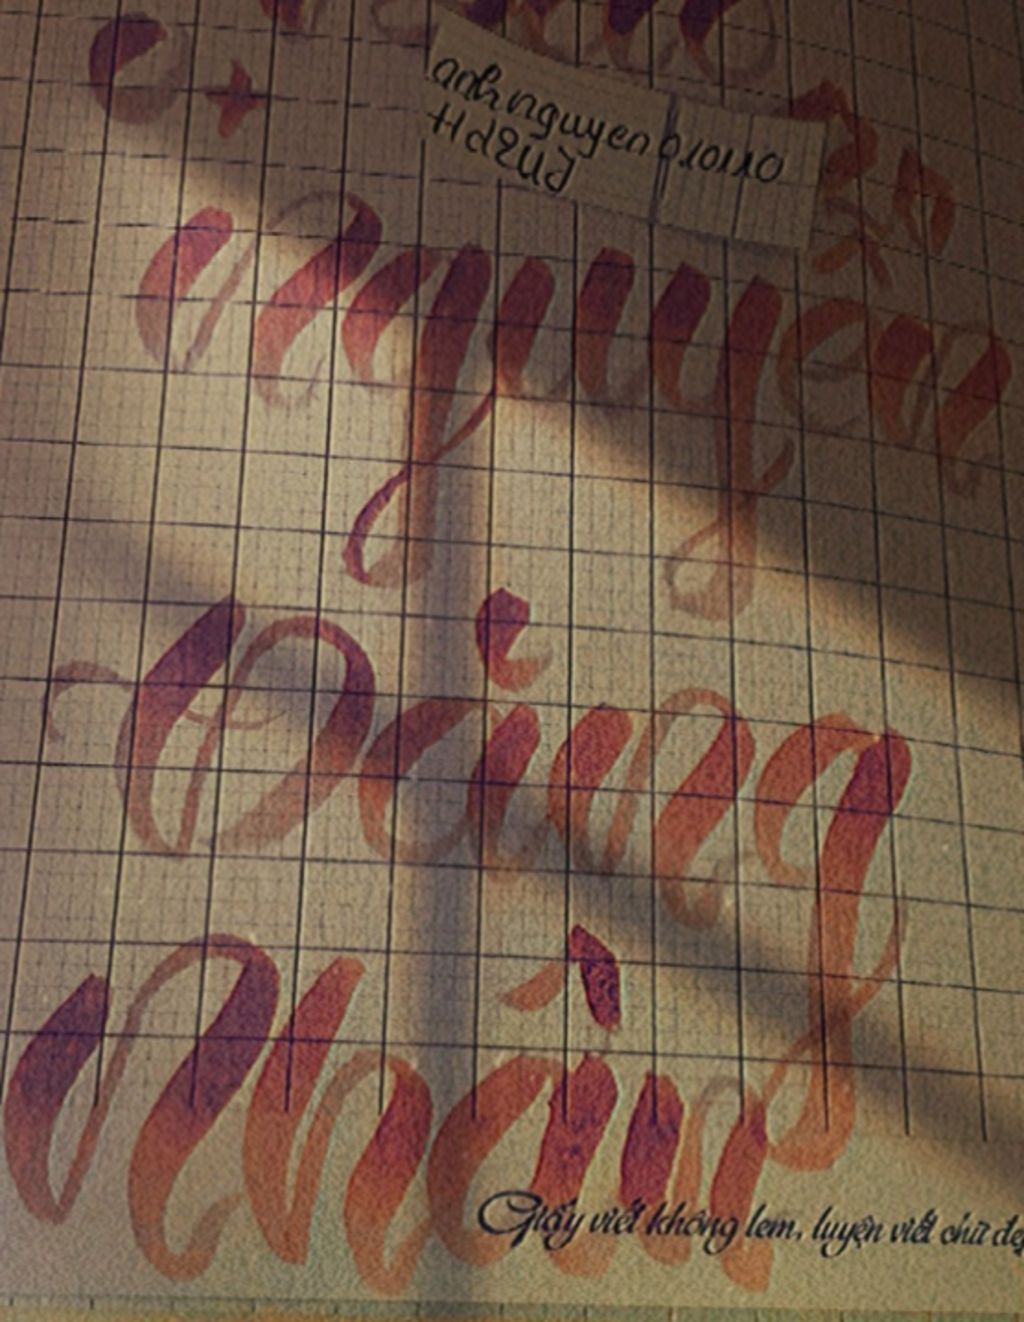 anhnguyen910110
Hd2Ud
Nguyen
Đăng
Nhân
Giấy viết không lem, luyện viết chữ đẹ